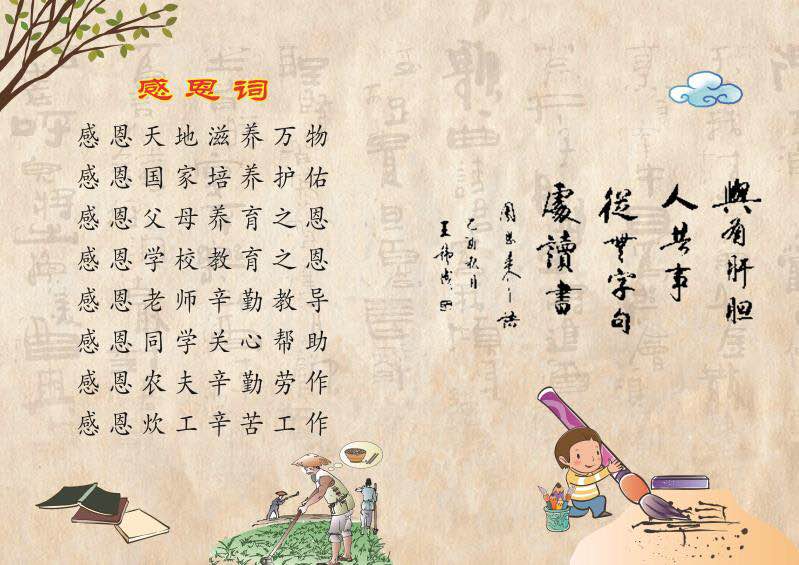 感恩词
感恩天地滋养万物
感恩国家培养护佑
感恩父母养育之恩
感恩学校教育之恩
感恩老师辛勤教导
感恩同学关心帮助
感恩农夫辛勤劳作
感恩炊工辛苦工作
與有肝胆
人共事
從無字句
處讀書
周恩来
乙酉秋月
王